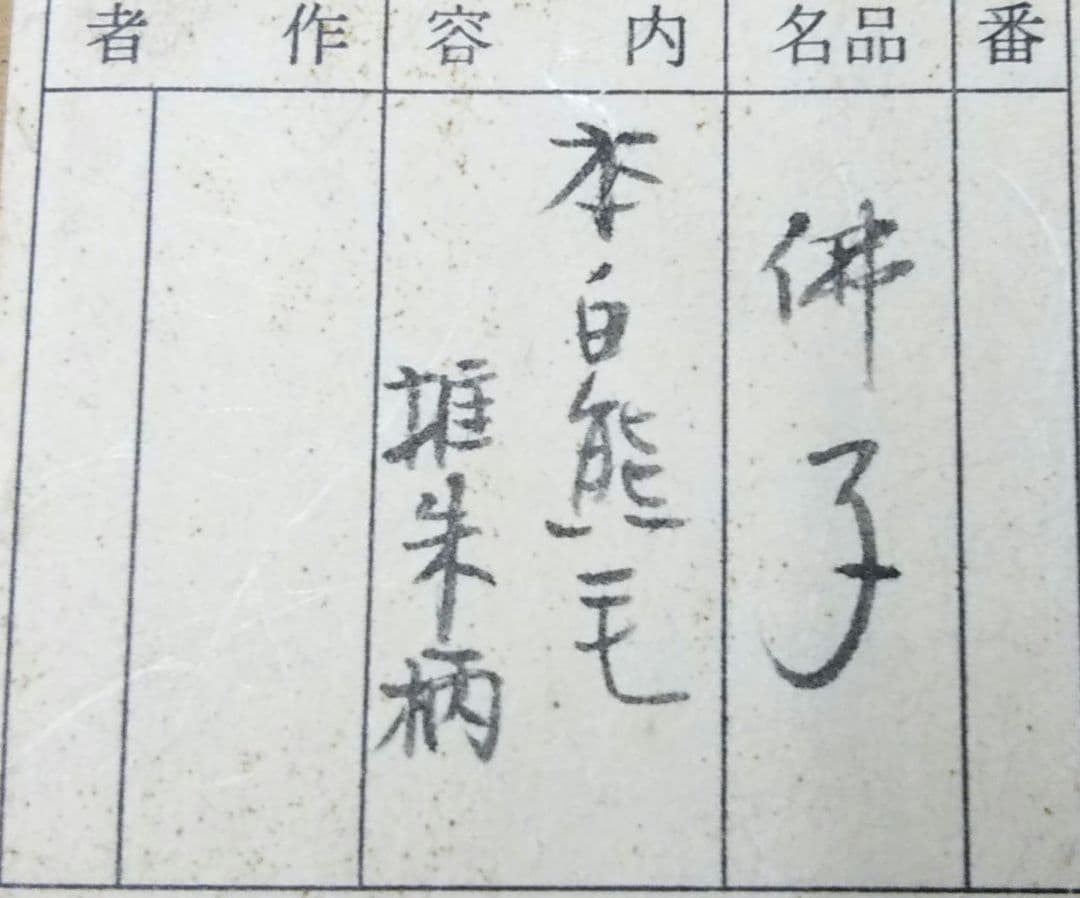 番
品名
内容
作者
佛子
本白熊毛
堆朱柄